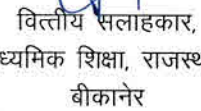 वित्तीय सलाहकार,
ध्यमिक शिक्षा, राजस्थ
बीकानेर